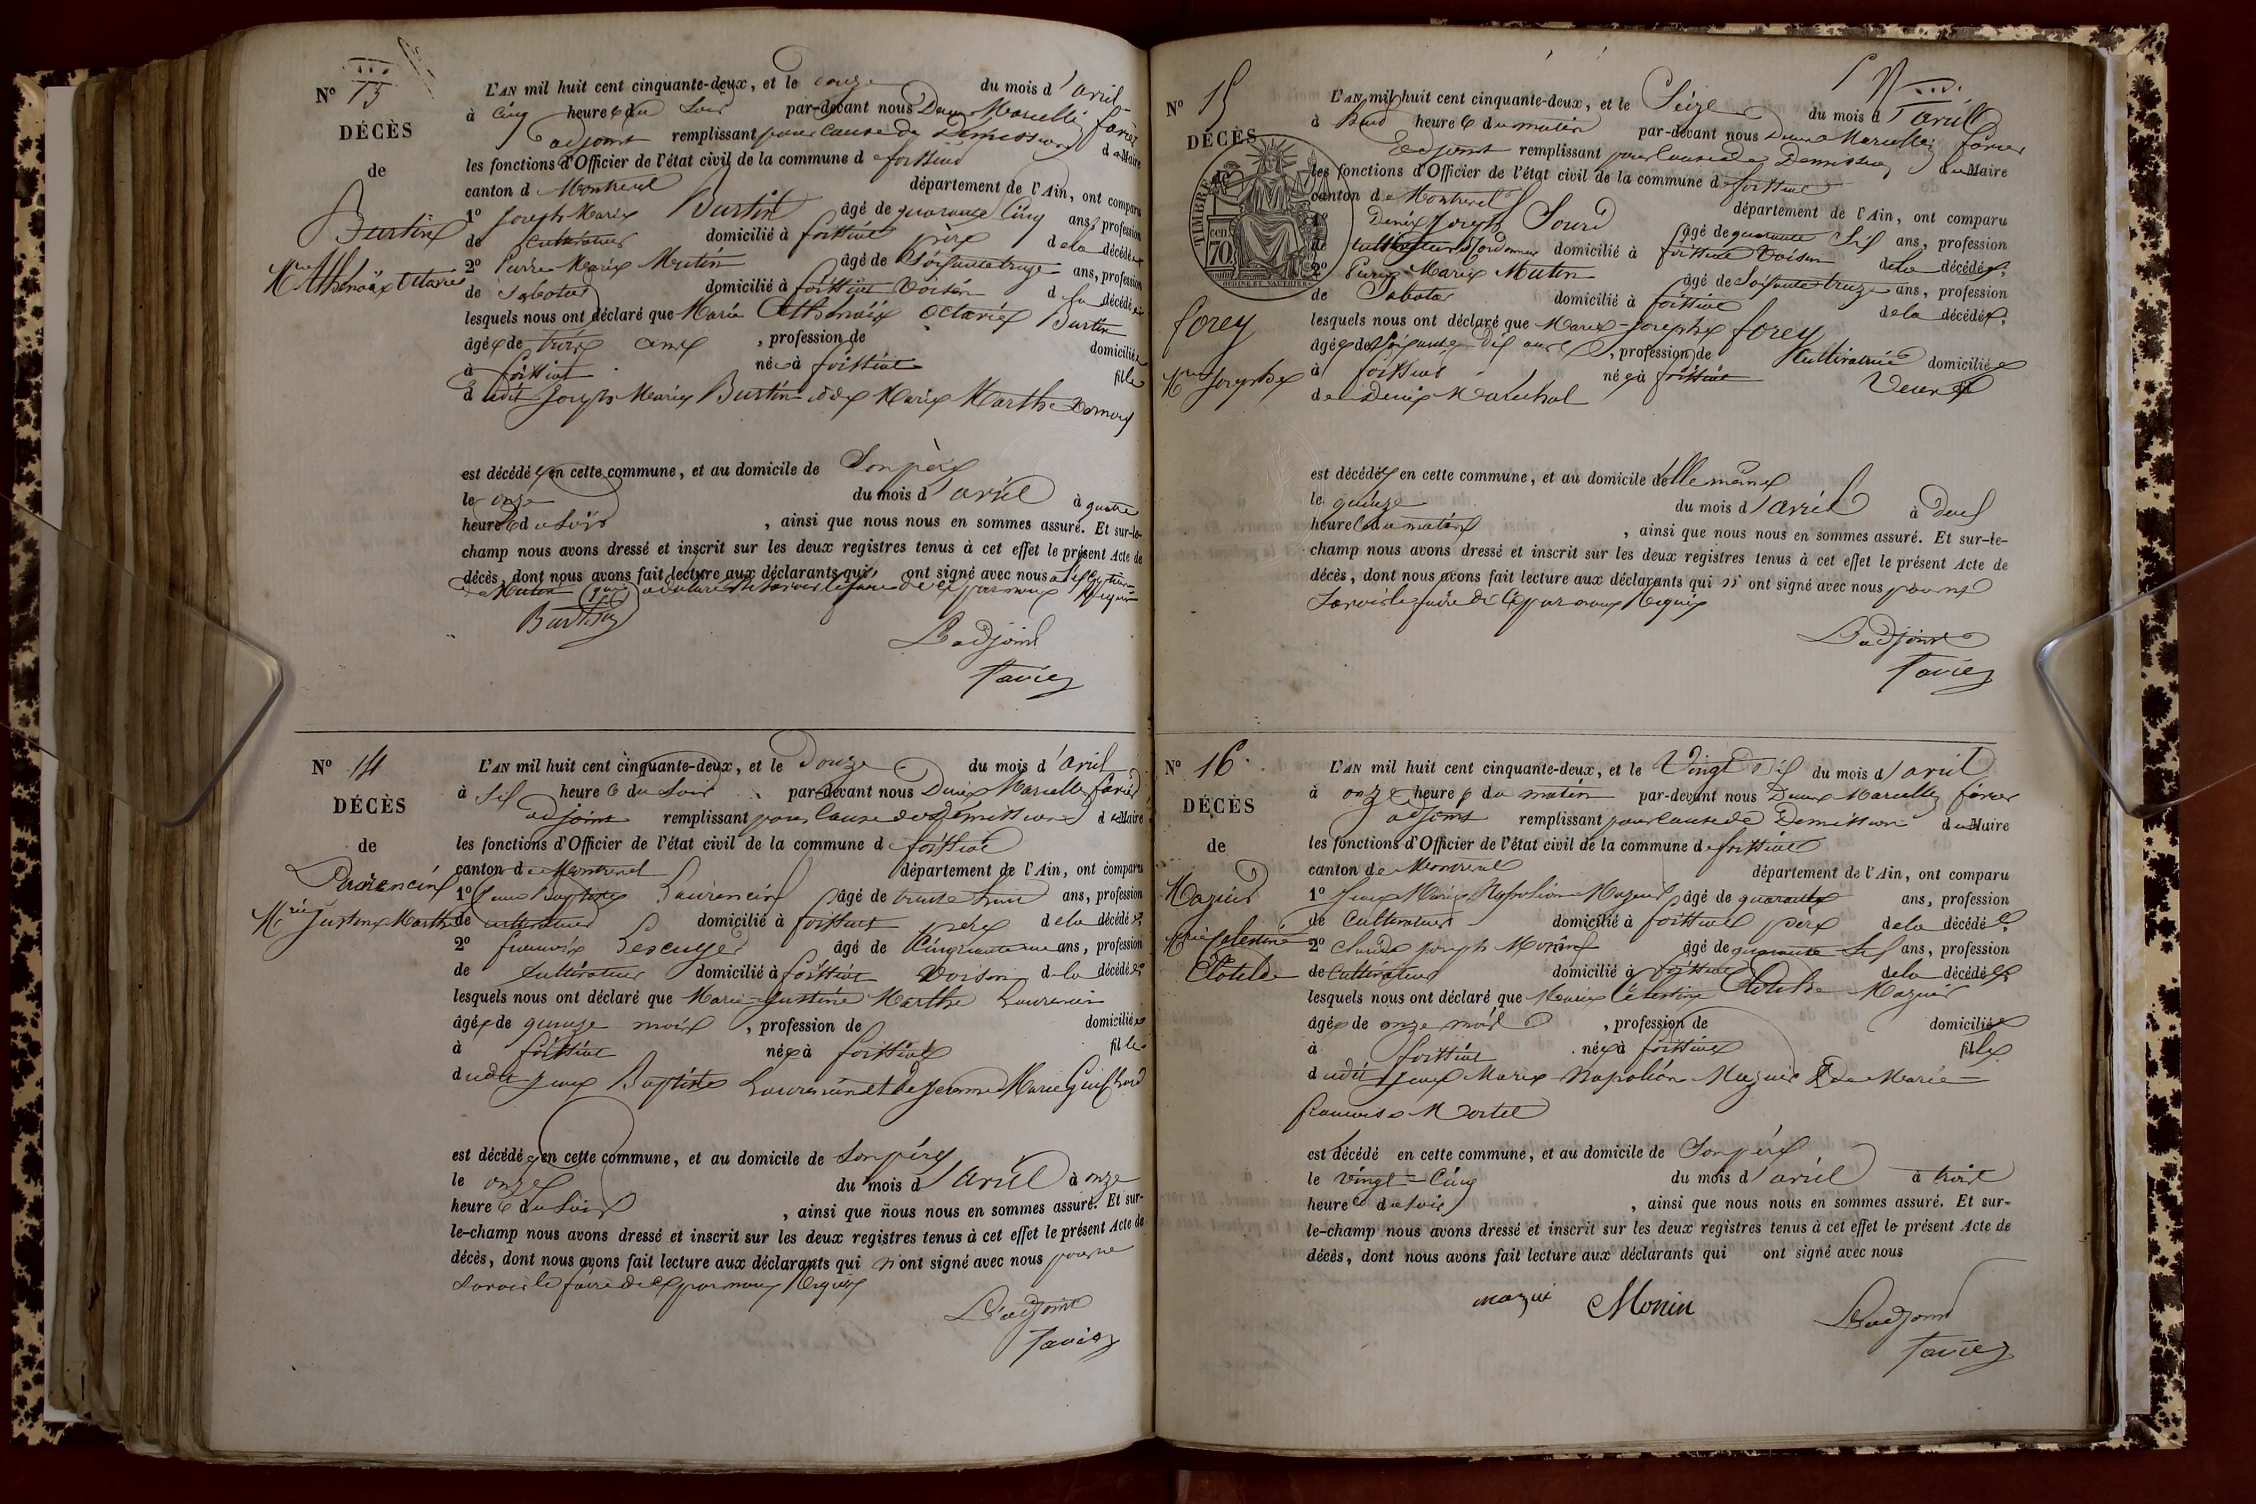 N° 13
DÉCÈS
de
Burtin
Mie Athénaïx Octavie
L'AN mil huit cent cinquante-deux, et le onze du mois d'avril
à cinq heures du soir par-devant nous Marcellin favier
adjoint remplissant pour cause de Démission du Maire
les fonctions d'Officier de l'état civil de la commune de forttiat
canton de Montrevel département de l'Ain, ont comparu
1° Joseph Marie Burtin âgé de quarante Cinq ans, profession
de cultivateur domicilié à forttiat père de la décédée
2° Pierre Marie Mutin âgé de Soixante treize ans, profession
de Sabotier domicilié à forttiat Voisin de la décédée
lesquels nous ont déclaré que Marie Athénaïx Octavie Burtin
âgée de trois ans, profession de domiciliée
à forttiat née à forttiat fille
dudit Joseph Marie Burtin et de Marie Marthe
est décédée en cette commune, et au domicile de Son père
le onze du mois d'avril à quatre
heures du Soir, ainsi que nous nous en sommes assuré. Et sur-le-
champ nous avons dressé et inscrit sur les deux registres tenus à cet effet le présent Acte de
décès, dont nous avons fait lecture aux déclarants qui ont signé avec nous
Mutin Savoir le faire de ce par nous Requis
Burtin
L'adjoint
Favier
N° 14
DÉCÈS
de
Laurencin
Mie Justine Marthe
L'AN mil huit cent cinquante-deux, et le Douze du mois d'avril
à Six heures du Soir par-devant nous Marcellin favier
adjoint remplissant pour Cause de Démission du Maire
les fonctions d'Officier de l'état civil de la commune de forttiat
canton de Montrevel département de l'Ain, ont comparu
1° Jean Baptiste Laurencin âgé de trente huit ans, profession
de cultivateur domicilié à forttiat père de la décédée
2° françois Lescuyer âgé de Cinquante un ans, profession
de Cultivateur domicilié à forttiat Voisin de la décédée
lesquels nous ont déclaré que Marie Justine Marthe Laurencin
âgée de quinze mois, profession de domiciliée
à forttiat née à forttiat fille
dudit Jean Baptiste Laurencin et de Jeanne Marie
est décédée en cette commune, et au domicile de Son père
le onze du mois d'avril à onze
heures du Soir, ainsi que nous nous en sommes assuré. Et sur-
le-champ nous avons dressé et inscrit sur les deux registres tenus à cet effet le présent Acte de
décès, dont nous avons fait lecture aux déclarants qui n'ont signé avec nous pour ne
Savoir le faire de ce par nous Requis
L'adjoint
Favier
N° 15
DÉCÈS
de
forey
Mie Josephe
TIMBRE
70 cen
L'AN mil huit cent cinquante-deux, et le Seize du mois d'avril
à huit heures du matin par-devant nous Marcellin favier
adjoint remplissant pour Cause de Démission du Maire
les fonctions d'Officier de l'état civil de la commune de forttiat
canton de Montrevel département de l'Ain, ont comparu
1° Denis Joseph Sourd âgé de quarante Six ans, profession
de Cordonnier domicilié à forttiat Voisin de la décédée
2° Pierre Marie Mutin âgé de Soixante treize ans, profession
de Sabotier domicilié à forttiat de la décédée
lesquels nous ont déclaré que Marie Josephe forey
âgée de Soixante Dix ans, profession de Cultivatrice domiciliée
à forttiat née à forttiat Veuve
de Denis Maréchal
est décédée en cette commune, et au domicile d'elle même
le quinze du mois d'avril à deux
heures du matin, ainsi que nous nous en sommes assuré. Et sur-le-
champ nous avons dressé et inscrit sur les deux registres tenus à cet effet le présent Acte de
décès, dont nous avons fait lecture aux déclarants qui n'ont signé avec nous pour ne
Savoir le faire de ce par nous Requis
L'adjoint
Favier
N° 16
DÉCÈS
de
Mazuir
Marie Celestine
Clotilde
L'AN mil huit cent cinquante-deux, et le Vingt Six du mois d'avril
à onze heures du matin par-devant nous Marcellin favier
adjoint remplissant pour Cause de Démission du Maire
les fonctions d'Officier de l'état civil de la commune de forttiat
canton de Montrevel département de l'Ain, ont comparu
1° Jean Marie Napoléon Mazuir âgé de quarante ans, profession
de Cultivateur domicilié à forttiat père de la décédée
2° Claude Joseph Monin âgé de quarante Six ans, profession
de Cultivateur domicilié à forttiat de la décédée
lesquels nous ont déclaré que Marie Célestine Clotilde Mazuir
âgée de onze mois, profession de domiciliée
à forttiat née à forttiat fille
dudit Jean Marie Napoléon Mazuir & de Marie
françoise Martel
est décédé en cette commune, et au domicile de Son père
le Vingt-Cinq du mois d'avril à trois
heures du soir, ainsi que nous nous en sommes assuré. Et sur-
le-champ nous avons dressé et inscrit sur les deux registres tenus à cet effet le présent Acte de
décès, dont nous avons fait lecture aux déclarants qui ont signé avec nous
mazuir Monin L'adjoint
Favier